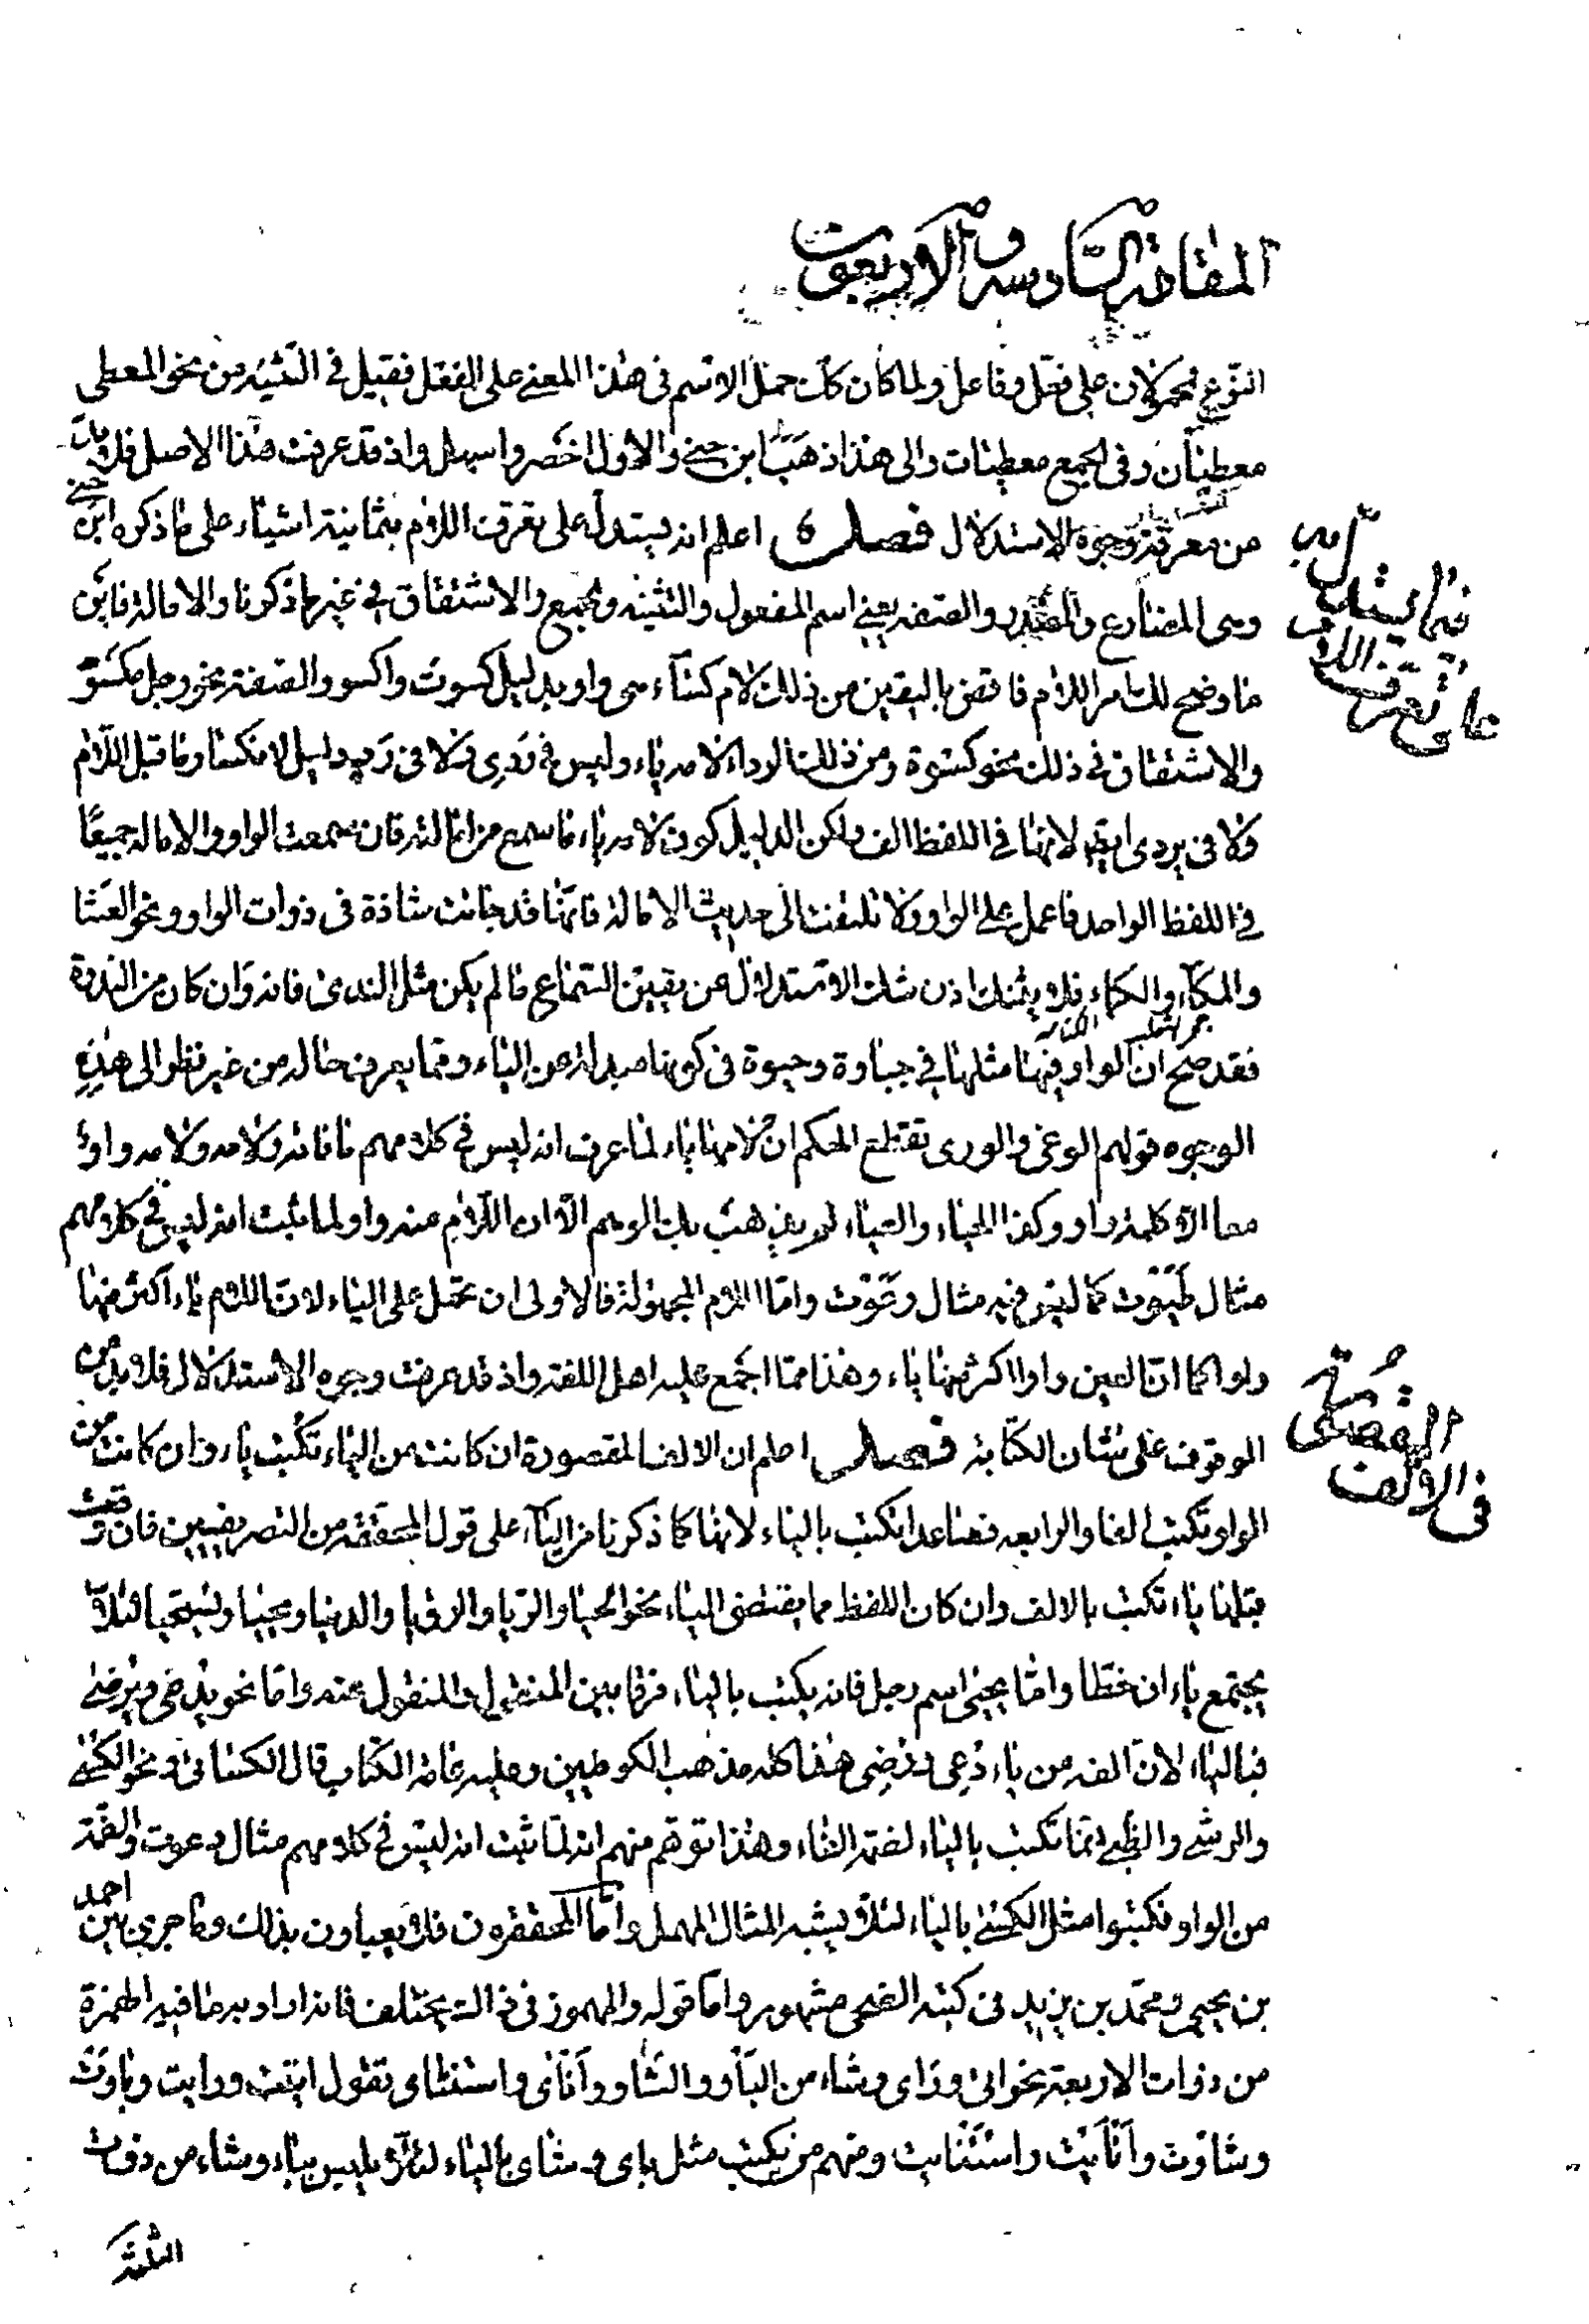 المقامة السادسة والاربعون
النوع محمولان على فعل وفاعل ولما كان كان حمل الاسم فى هذا المعنى على الفعل فقيل فى التثنيه من نحو المعطى
معطيان وفى الجمع معطيات والى هذا ذهب ابن جنى والاول اخصر واسهل واذ قد عرفت هذا الاصل فلا بد
من معرفة وجوه الاستدلال فصل اعلم انه يستدل على تعرف اللام بثمانية اشياء على ما ذكره ابن جنى
وهى المضارع والمصدر والصفه يعنى اسم المفعول والتثنيه والجمع والاشتقاق فى غير ما ذكرنا والامالة فاين
ما وضح لك امر اللام فاقض باليقين من ذلك لام كساء هى واو بدليل كسوت واكسو والصفة نحو رجل مكسو
والاشتقاق فى ذلك نحو كسوة ومن ذلك الرداء لامه ياء وليس فى ردى ولا فى رد دليل لانكسار ما قبل اللام
ولا فى يردى ايضا لانها فى اللفظ الف ولكن الدليل كون لامه ياء ما سمع من امالته فان سمعت الواو والامالة جميعا
فى اللفظ الواحد فاعمل على الواو ولا تلتفت الى حديث الامالة فانها قد جائت شاذة فى ذوات الواو نحو العشا
والمكا والكباء فلا يثنك اذن مثل الاستدلال عن يقين السماع ما لم يكن مثل الندى فانه وان كان من الندوة
فقد صح ان الواو فيها مثلها فى جباوة وحيوة فى كونها مبدلة من الياء ومما يعرف حاله من غير نظر الى هذه
الوجوه قولهم الوغى والورى تقطع الحكم ان لامها ياء لما عرف انه ليس فى كلامهم ما فائه ولامه واو
معا الا كلمة واو وكذا الحياء والعياء لم يذهب بك الوهم الا ان اللام منه واو لما ثبت انه ليس فى كلامهم
مثال حيوت كما ليس فيه مثال وعوت واما اللام المجهولة فالاولى ان تحمل على الياء لان اللام ياء اكثر منها
واوا كما ان العين واوا اكثر منها ياء وهذا مما اجمع عليه اهل اللغه واذ قد عرفت وجوه الاستدلال فلا بد من
الوقوف على شان الكتابة فصل اعلم ان الالف المقصورة ان كانت من الياء تكتب ياء وان كانت من
الواو تكتب الفا والرابعه فصاعدا تكتب بالياء لانها كما ذكرنا من الياء على قول المحققه من التصريفيين فان وقعت
قبلها ياء تكتب بالالف وان كان اللفظ مما يقتضى الياء نحو الحيا والريا والرؤيا والدنيا ويحيا ويستحيا لئلا
يجتمع ياءان خطا واما يحيى اسم رجل فانه يكتب بالياء فرقا بين المنقول والمنقول عنه واما نحو يدعى ويرضى
فبالياء لان الفه من ياء دعى ورضى هذا كله مذهب الكوفيين وعليه عامة الكتاب قال الكسائى فى نحو الكسى
والرشى والظبى انما تكتب بالياء لضمة الفاء وهذا توهم منهم انه لما ثبت انه ليس فى كلامهم مثال وعوت والضمة
من الواو فكتبوا مثل الكسى بالياء لئلا يشبه المثال المهمل واما المحققون فلا يعباون بذلك وما جرى بين احمد
بن يحيى ومحمد بن يزيد فى كتبه الضحى مشهور واما قوله والمهموز فى ذالك يختلف فانه اراد به ما فيه الهمزة
من ذوات الاربعة نحو انى وراى وشاء من الباو والشاو وانآى واستثناى تقول ايتت ورايت وباوت
وشاوت وانايت واستثنايت ومنهم من يكتب مثل باى وشاى بالياء لئلا يلبس بباء وشاء من ذوات
الثلثة
فيما يستدل به
على تعرف اللام
القصرى
فى الالف